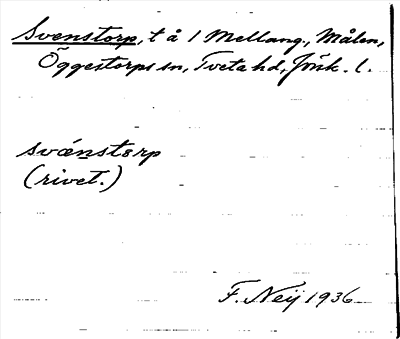 Svenstorp, t å 1 Mellang., Målen,
Öggestorps sn, Tveta hd, Jönk. l.
svǽnstɵrp
(rivet.)
F. Neij 1936